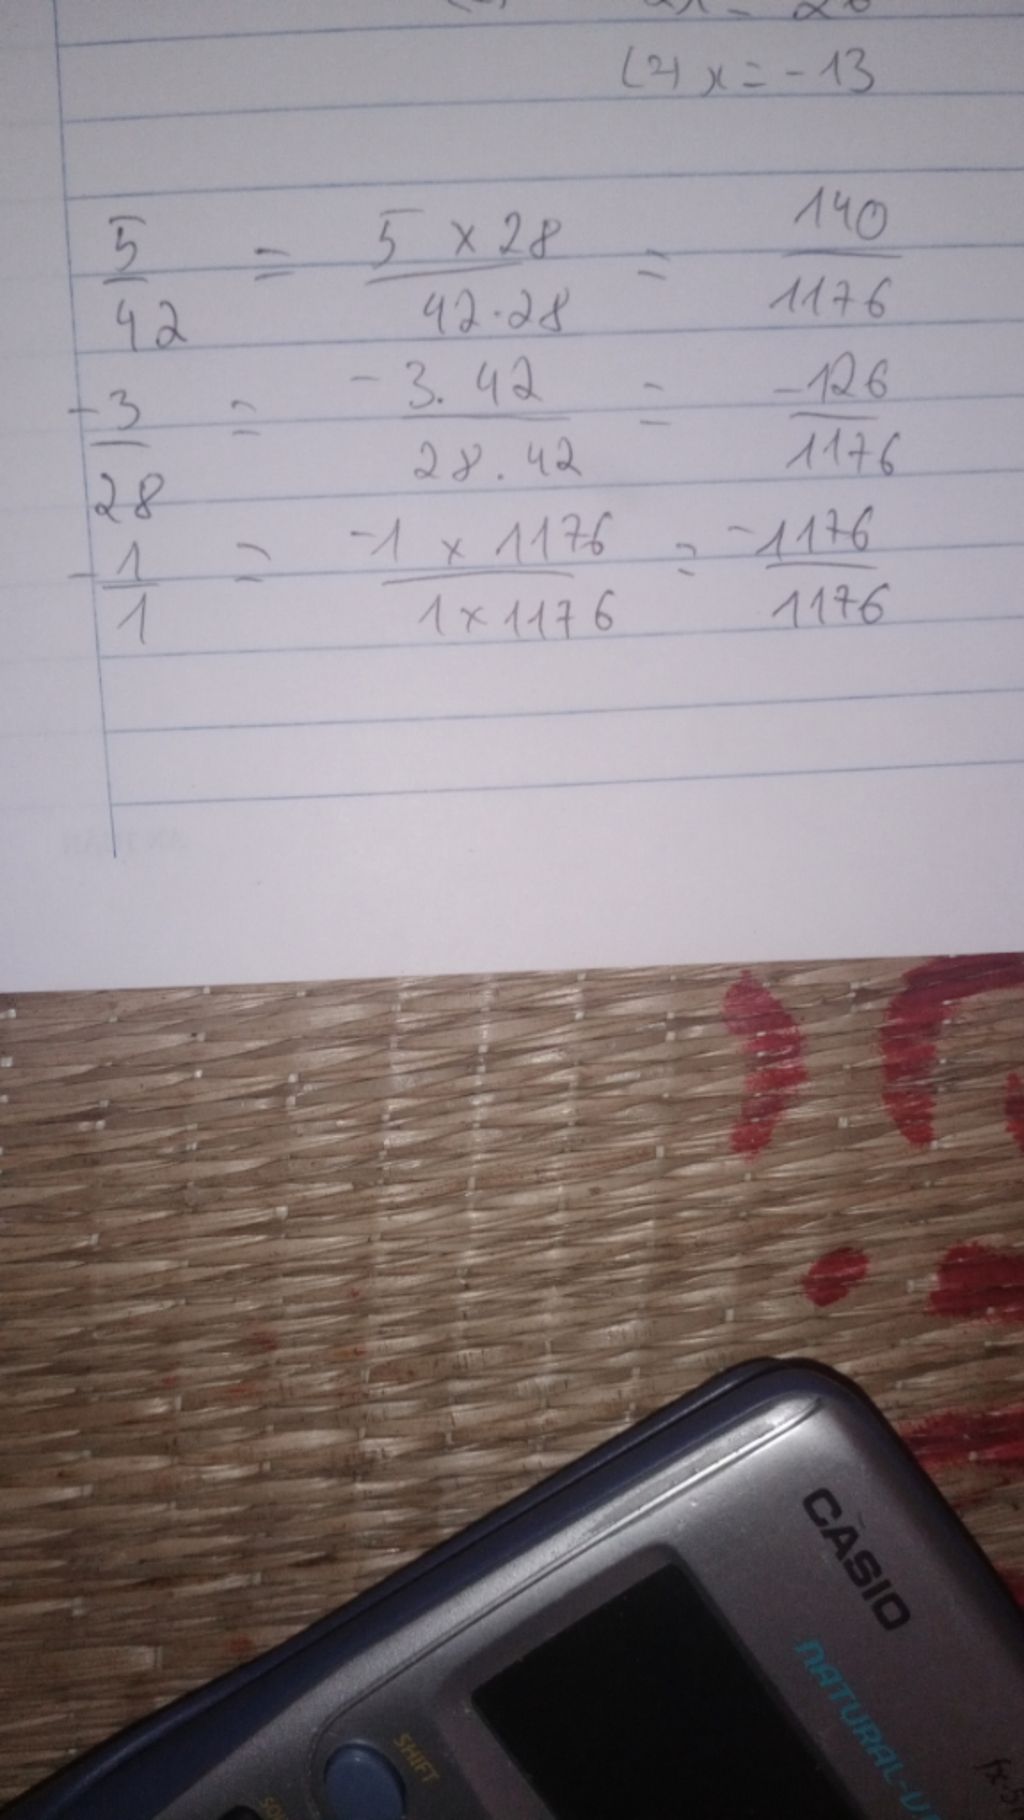 (2) x = - 13
5/42 = 5 x 28/42 . 28 = 140/1176
-3/28 = -3 . 42/28 . 42 = -126/1176
-1/1 = -1 x 1176/1 x 1176 = -1176/1176
CASIO
NATURAL-V
fx-5
SHIFT